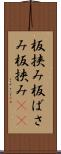 板挟み板ばさ
み板挾み